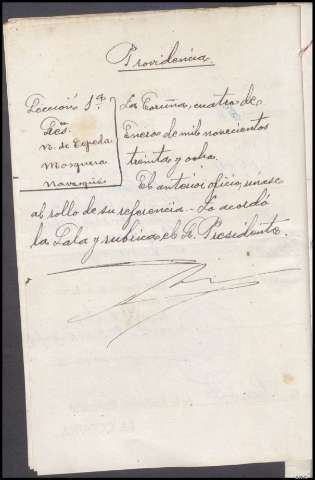 Providencia
Sección 1ª
Sres.
N. de Cepeda
Mosquera
La Coruña, cuatro de
Enero de mil novecientos
treinta y ocho.
El anterior oficio, únase
al rollo de su referencia - Lo acordó
la Sala y rubrica el Sr. Presidente.